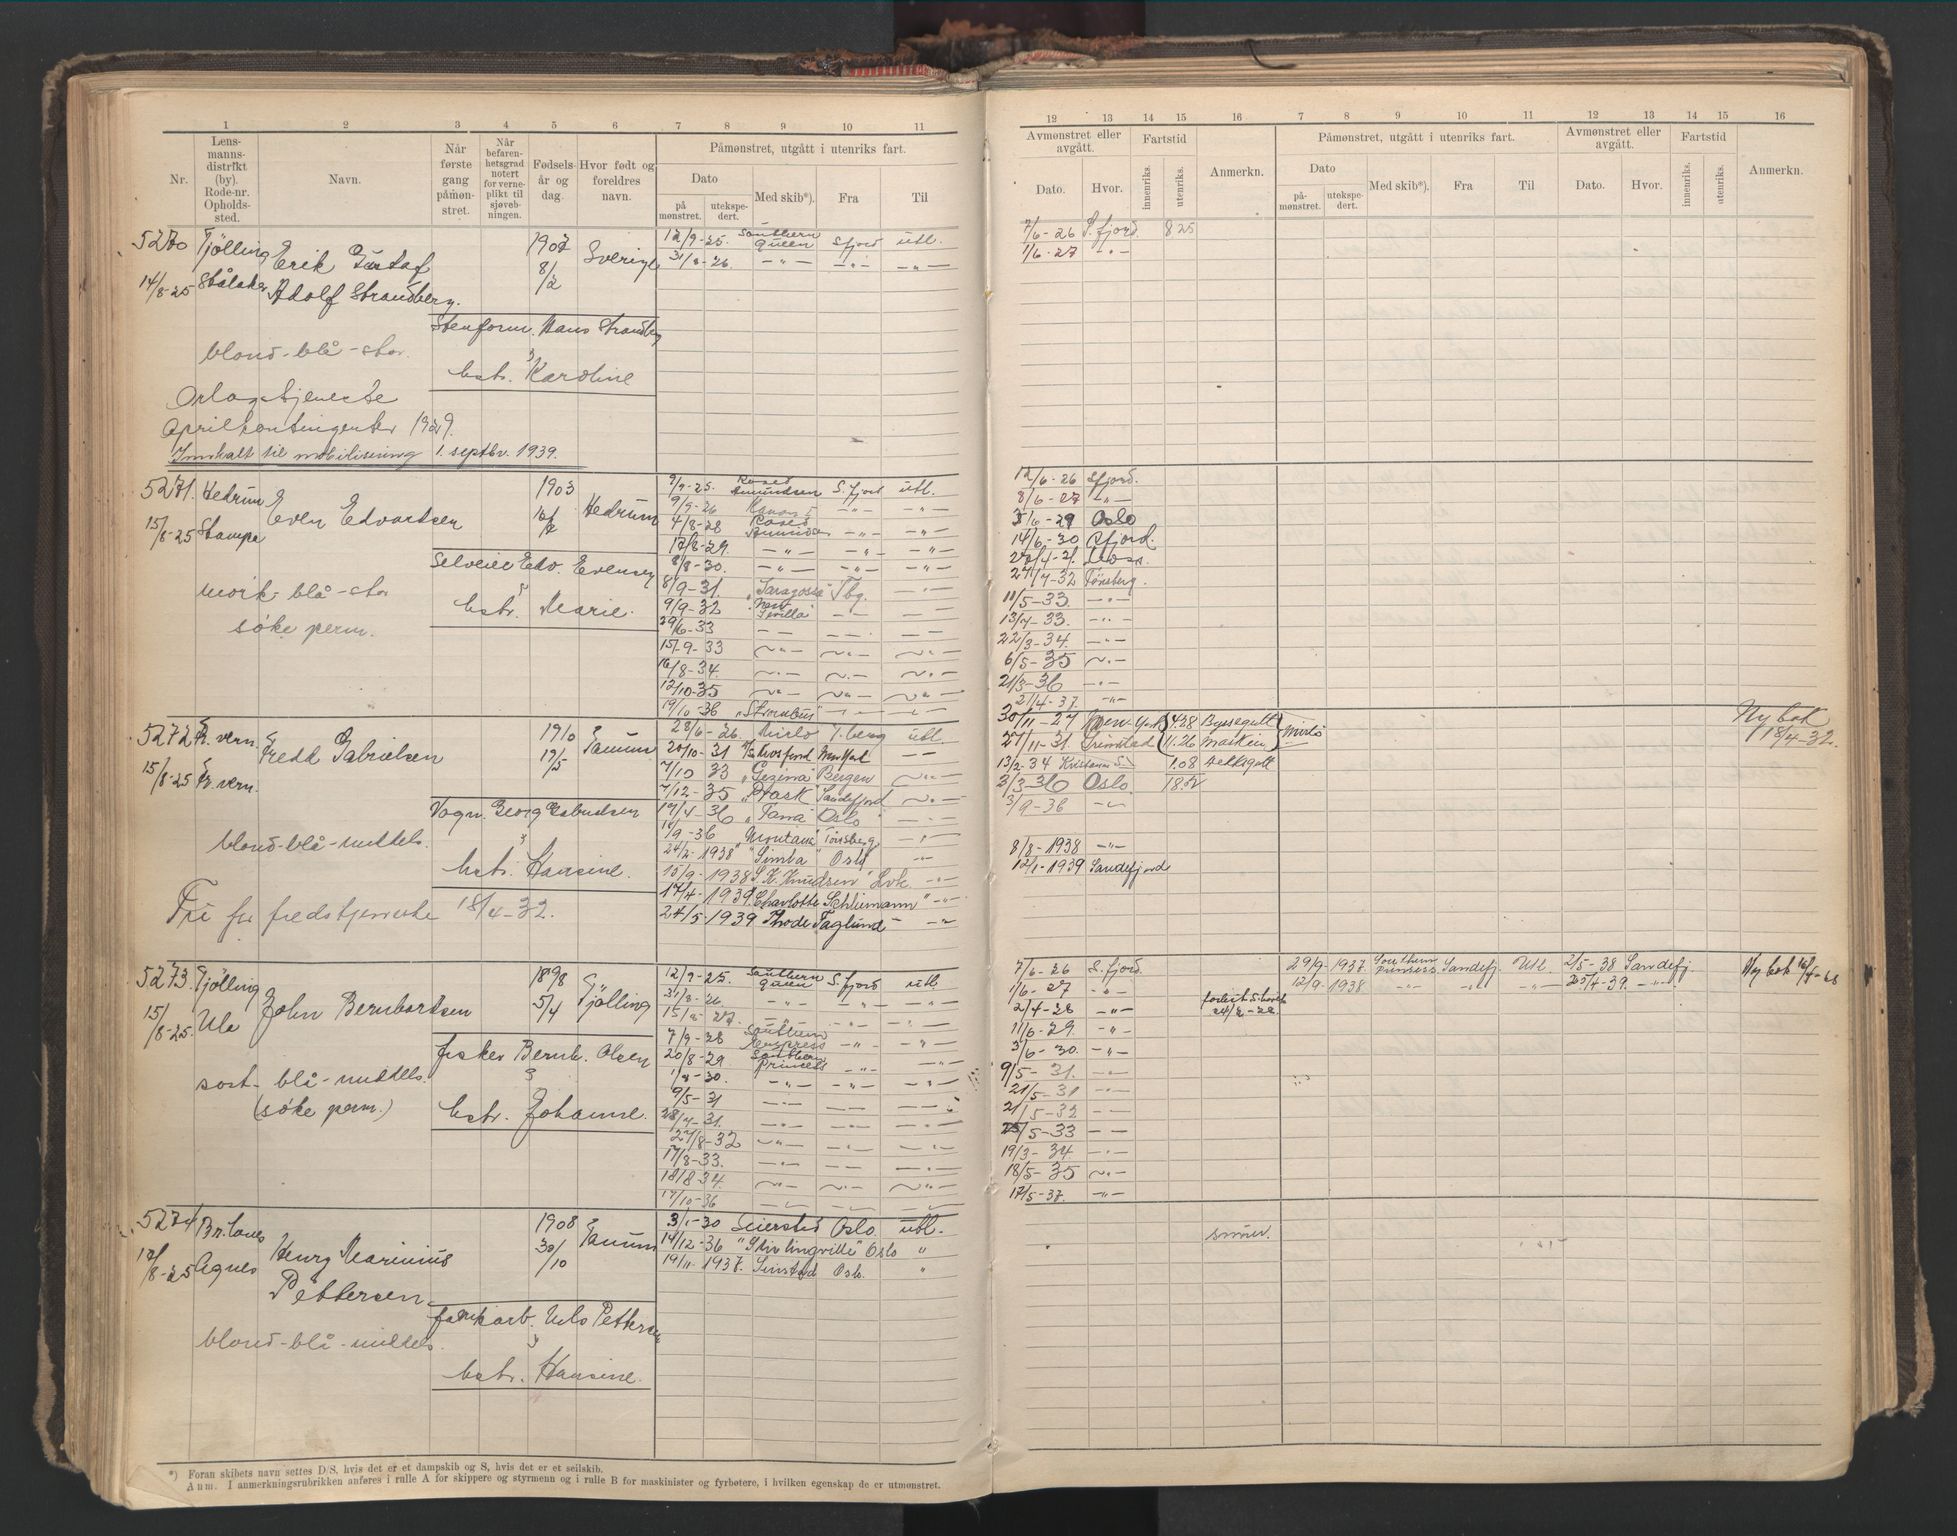 1 2 3 4 5 6 7 8 9 10 11
Nr.
Lens-
manns-
distrikt
(by).
Rode-nr.
Opholds-
sted.
Navn.
Når
første
gang
påmøn-
stret.
Når
befaren-
hetsgrad
notert
for verne-
plikt til
sjøveb-
ningen.
Fødsels-
år og
dag.
Hvor født og
foreldres
navn.
Påmønstret, utgått i utenriks fart.
Dato
på
mønstret.
utekspe-
dert.
Med skib*).
Fra
Til
5270 Tjölling Erik Gustaf 1902 Sverige
14/8-25 Ståløker Adolf Strandberg. 8/2
Stenform. Hans Strandberg
blond-blå-stor.
hstr. Karoline
Orlogstjeneste
Aprilkontingenten 1929.
Innkalt til mobilisering 1. septbr. 1939.
12/9-25. Southern Queen Sfjord utl.
31/8-26. -"- -"- -"-
5271. Hedrum Even Edvartsen 1903 Hedrum
15/8-25 Stampe
Selveier Edv. Evensen
mörk-blå-stor
hstr. Marie.
søke perm.
9/9-25. Roald Amundsen S.fjord utl.
9/9-26
4/8-28 Roald Amundsen
12/8-29. -"- -"- -"-
8/8-30. -"- -"- -"-
8/9-31. "Saragossa" Tbg.
9/9-32
29/6-33
15/-9-33
16/8-34.
12/10-35
19/10-36 "Strombus"
5272 Fr. vern Fredk Gabrielsen 1910 Tanum
15/8-25 Fr. vern. 19/5
Vogn. Georg
blond-blå-middels.
hstr. Hansine.
Fri for fredstjeneste 18/4-32.
28/6-26. Mirlo T.berg utl.
20/10-31
7/10 33 "Gezina" Bergen
7/12-35 "Prask" Sandefjord
17/4-36 "Tana" Oslo
/9-36 "Montana" Tönsberg
24/2-1938 "Simba" Oslo
15/9-1938 S. K. Knudsen
17/4-1939. "Charlotte Schliemann"
24/5-1939 Thode Faglund
5273. Tjölling John Bernhartsen 1898 Tjölling
15/8-25. Ula 5/4
fisker Bernh. Olsen
sort-blå-middels.
(søke perm.) hstr. Johanne.
12/9-25. Southern Queen S.fjord utl
31/8-26.
15/8-27.
7/9-28 Southern Empress
20/8-29 Southern Princess
1/8-30.
9/5-31
28/7-31.
27/8-32
17/8-33.
18/8 34.
17/10-36
5274 Br.lanes Henry Marinius 1908 Tanum
17/8-25 Agnes Pettersen. 30/10
Nils Pettersen
blond-blå-middels.
hstr. Hansine.
3/1-30 Seierstad Oslo utl.
14/12-36 "Stirlingville" Oslo "
19/11-1937. Simstad Oslo. "
*) Foran skibets navn settes D/S, hvis det er et dampskib og S, hvis det er et seilskib.
Anm. I anmerkningsrubrikken anføres i rulle A for skippere og styrmenn og i rulle B for maskinister og fyrbøtere, i hvilken egenskap de er utmønstret.
12 13 14 15 16 7 8 9 10 11 12 13 14 15 16
Avmønstret eller
avgått.
Dato. Hvor.
Fartstid
innenriks. utenriks.
Anmerkn.
Påmønstret, utgått i utenriks fart.
Dato
på-
mønstret.
utekspe-
dert.
Med skib*). Fra Til
Avmønstret eller
avgått.
Dato. Hvor.
Fartstid
innenriks. utenriks.
Anmerkn.
7/6-26 S.fjord. 825
1/6-27 -"-
12/6-26 Sfjord.
8/6-27 -"-
5/6-29 Oslo
14/6-30 Sfjord.
Moss
27/4-32 Tönsberg.
11/5-33. -"-
13/7-33. -"-
22/3-34. -"-
6/5-35
21/3-36 -"-
21/4-37. -"-
30/11-27 New York 4.38 Byssegutt Mirlo Ny bok
27/11-31. Grimstad 11.26 Maskin 18/4-32.
13/2-34 Kristians S. 1.08 Dekksgutt
2/3-36 Oslo
3/9-36
8/8-1938 -"-
12/1-1939 Sandefjord
7/6-26 S.fjord. 29/9-1937. Southern Princess Sandefj. Utl. 2/5-38 Sandefj. Ny bok
1/6-27 -"- 12/9-1938 -"- -"- -"- 25/4-39. -"-
2/4-28 -"-
11/6-29. -"-
3/6-30. -"-
9/5-31. -"-
21/5-31 -"-
21/5-32 --
25/5-33 --
19/3-34. -"-
18/5-35
12/5-37. -"-